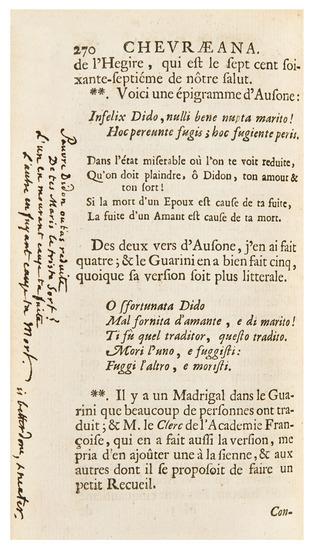 270 CHEVRÆANA.
de l'Hegire, qui est le sept cent soi-
xante-septiéme de nôtre salut.
**. Voici une épigramme d'Ausone:
Infelix Dido, nulli bene nupta marito!
Hoc pereunte fugis; hoc fugiente peris.
Dans l'état miserable où l'on te voit reduite,
Qu'on doit plaindre, ô Didon, ton amour &
ton sort!
Si la mort d'un Epoux est cause de ta fuite,
La fuite d'un Amant est cause de ta mort.
Des deux vers d'Ausone, j'en ai fait
quatre; & le Guarini en a bien fait cinq,
quoique sa version soit plus litterale.
O sfortunata Dido
Mal fornita d'amante, e di marito!
Ti fù quel traditor, questo tradito.
Mori l'uno, e fuggisti:
Fuggi l'altro, e moristi.
**. Il y a un Madrigal dans le Gua-
rini que beaucoup de personnes ont tra-
duit; & M. le Clerc de l'Academie Fran-
çoise, qui en a fait aussi la version, me
pria d'en ajoûter une à la sienne, & aux
autres dont il se proposoit de faire un
petit Recueil.
Con-
Pauvre Didon ou t'as reduite
De tes Maris le triste Sort?
L'un en mourant cause ta fuite
L'autre en fuyant cause ta Mort.
is better done, & neater.